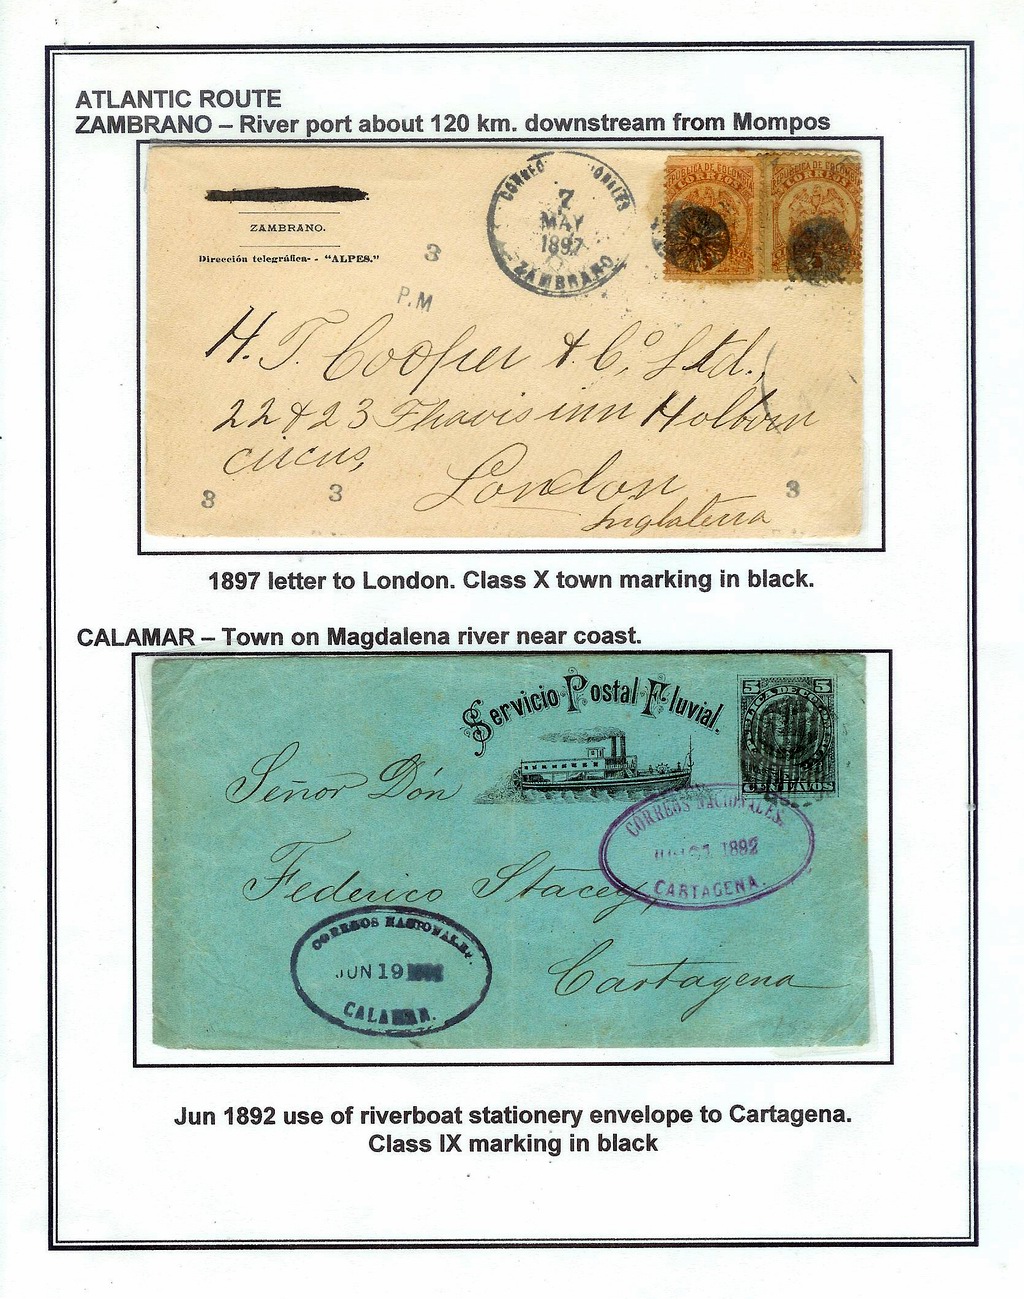 ATLANTIC ROUTE
ZAMBRANO – River port about 120 km. downstream from Mompos
ZAMBRANO.
Dirección telegráfica- - "ALPES."
7
MAY
1897
ZAMBRANO.
REPUBLICA DE COLOMBIA
CORREOS
CORREOS
3
P.M
H. T. Cooper & Co. Ltd.,
22 & 23 Thavis inn Holborn
circus,
London
Inglaterra
3
3
3
1897 letter to London. Class X town marking in black.
CALAMAR – Town on Magdalena river near coast.
Servicio Postal Fluvial.
5 5
CENTAVOS
Señor Dón
CORREOS NACIONALES.
1892
CARTAGENA.
Federico Stacey,
CORREOS NACIONALES.
JUN 19
CALAMAR.
Cartagena
Jun 1892 use of riverboat stationery envelope to Cartagena.
Class IX marking in black